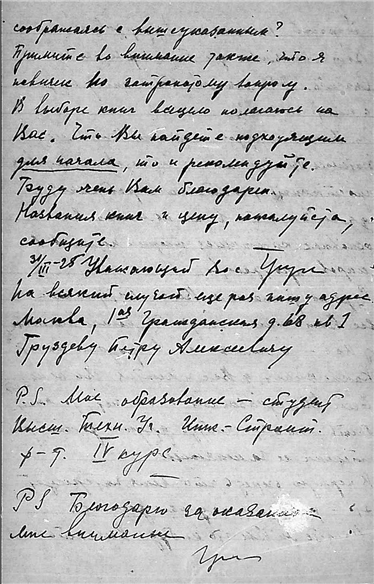 сообразаясь с вышеуказанным?
Примите во внимание также, что я
новичек по затронутому вопросу.
В выборе книг всецело полагаюсь на
Вас. Что Вы найдете подходящим
для начала, то и рекомендуйте.
Буду очень Вам благодарен.
Названия книг и цену, пожалуйста,
сообщите.
31/III-25 Уважающий Вас
На всякий случай еще раз пишу адрес
Москва, 1ая Гражданская д. 68 кв 1
Груздеву Петру Алексеевичу
P.S. Мое образование – студент
Высш. Техн. Уч. Инж.-Строит.
ф-т. IV курс
PS Благодарю за оказанное
мне внимание